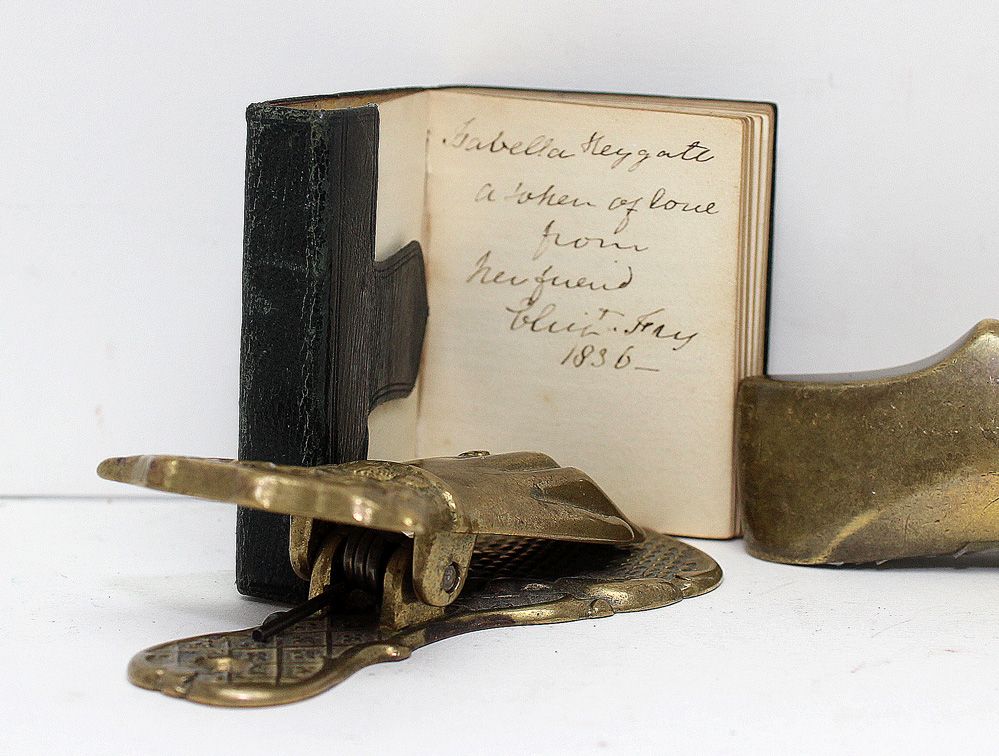 Isabella Heygate
a token of love
from
her friend
Elizth. Fry
1836_